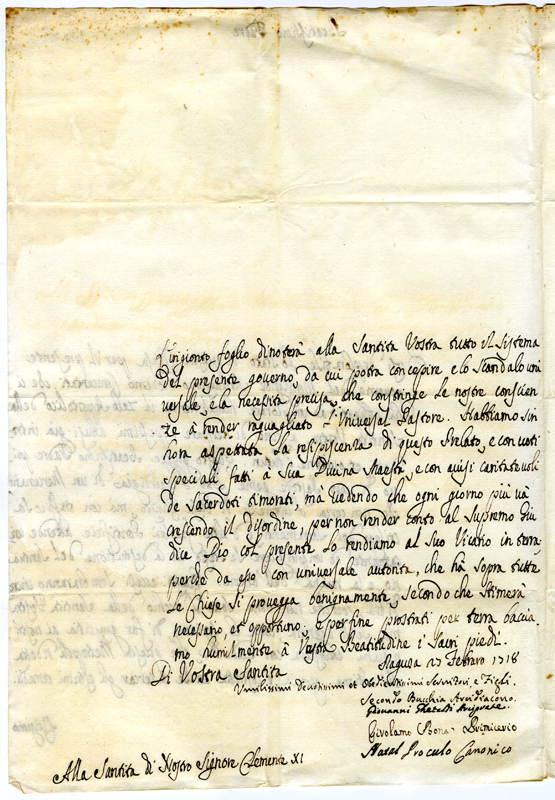 L'ingionto foglio dinoterà alla Santità Vostra tutto il sistema
del presente governo, da cui potrà concepire e lo scandalo uni
versale, e la necessità precisa, che constringe le nostre conscien
ze à render raguagliato l'Universal Pastore. Habbiamo sin
hora aspettata la resipiscenza di questo Prelato, e con voti
speciali fatti à Sua Divina Maestà, e con avisi caritatevoli
de Sacerdoti timorati, ma vedendo che ogni giorno più và
crescendo il disordine, per non render conto al Supremo Giu
dice Dio col presente lo rendiamo al Suo Vicario in terra,
perche da esso con universale autorità, che hà sopra tutte
le Chiese si provegga benignamente, secondo che stimerà
necessario, et opportuno, e per fine prostrati per terra baccia
mo humilmente à Vostra Beatitudine i Sacri piedi.
Di Vostra Santità
Ragusa 27 Febraro 1718
Umilissimi Devotissimi et Obedientissimi Servitori, e Figli.
Secondo Bucchia Arcidiacono.
Giovanni Arciprete.
Girolamo Bona Primicerio
Natal Proculo Canonico
Alla Santità di Nostro Signore Clemente XI